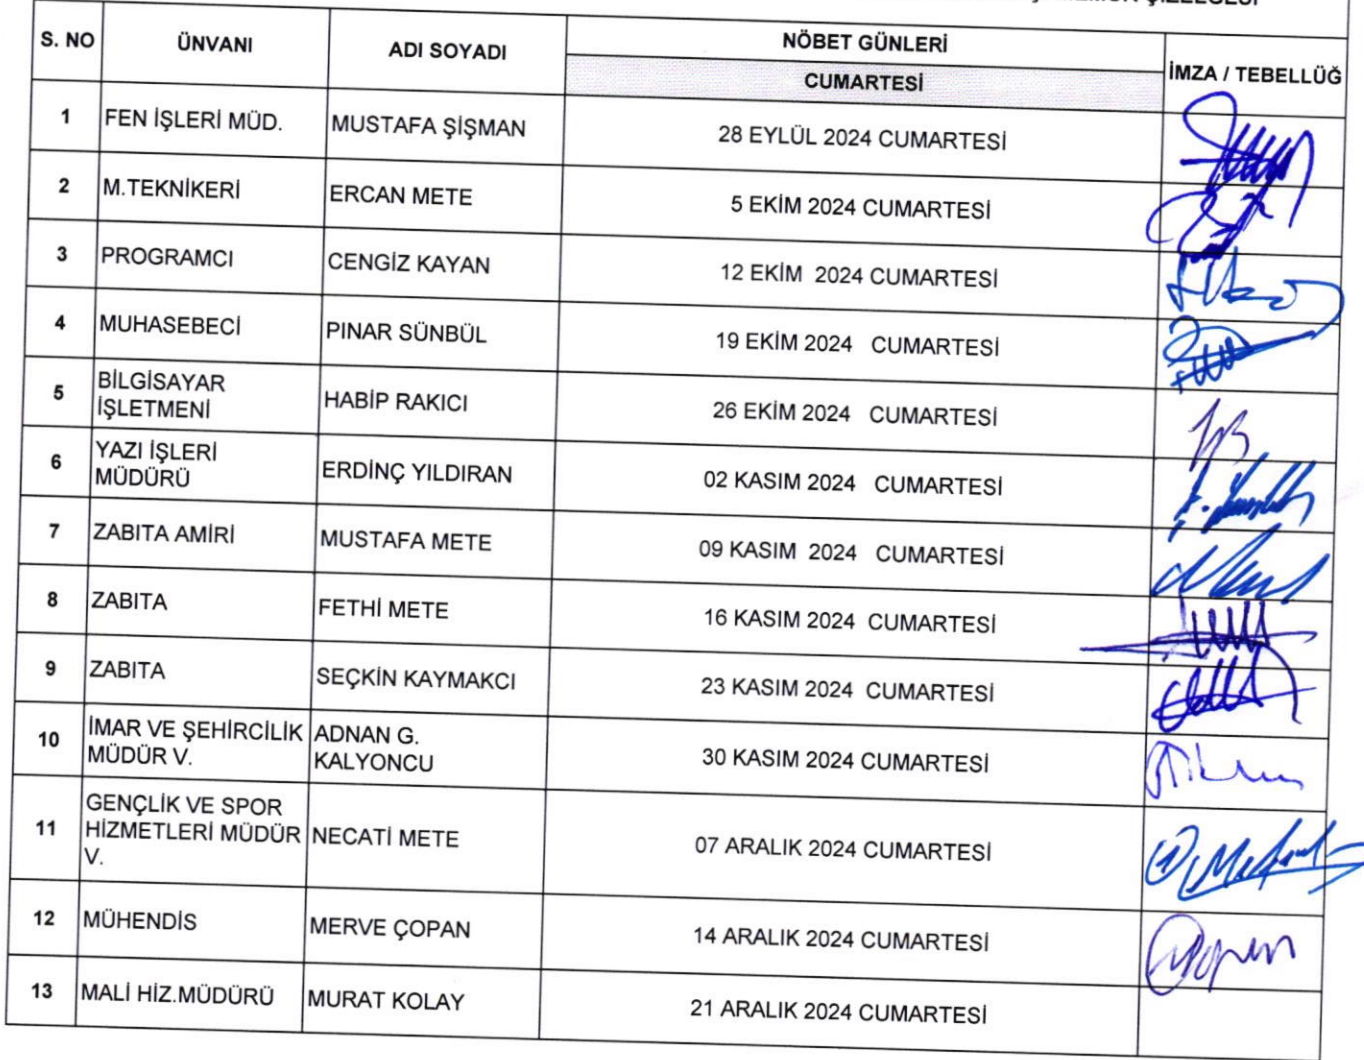 ÇİZELGESİ
S. NO ÜNVANI ADI SOYADI NÖBET GÜNLERİ İMZA / TEBELLÜĞ
CUMARTESİ
1 FEN İŞLERİ MÜD. MUSTAFA ŞİŞMAN 28 EYLÜL 2024 CUMARTESİ
2 M.TEKNİKERİ ERCAN METE 5 EKİM 2024 CUMARTESİ
3 PROGRAMCI CENGİZ KAYAN 12 EKİM 2024 CUMARTESİ
4 MUHASEBECİ PINAR SÜNBÜL 19 EKİM 2024 CUMARTESİ
5 BİLGİSAYAR
İŞLETMENİ HABİP RAKICI 26 EKİM 2024 CUMARTESİ
6 YAZI İŞLERİ
MÜDÜRÜ ERDİNÇ YILDIRAN 02 KASIM 2024 CUMARTESİ
7 ZABITA AMİRİ MUSTAFA METE 09 KASIM 2024 CUMARTESİ
8 ZABITA FETHİ METE 16 KASIM 2024 CUMARTESİ
9 ZABITA SEÇKİN KAYMAKCI 23 KASIM 2024 CUMARTESİ
10 İMAR VE ŞEHİRCİLİK ADNAN G.
MÜDÜR V. KALYONCU 30 KASIM 2024 CUMARTESİ
GENÇLİK VE SPOR
11 HİZMETLERİ MÜDÜR NECATİ METE 07 ARALIK 2024 CUMARTESİ
V.
12 MÜHENDİS MERVE ÇOPAN 14 ARALIK 2024 CUMARTESİ
13 MALİ HİZ.MÜDÜRÜ MURAT KOLAY 21 ARALIK 2024 CUMARTESİ